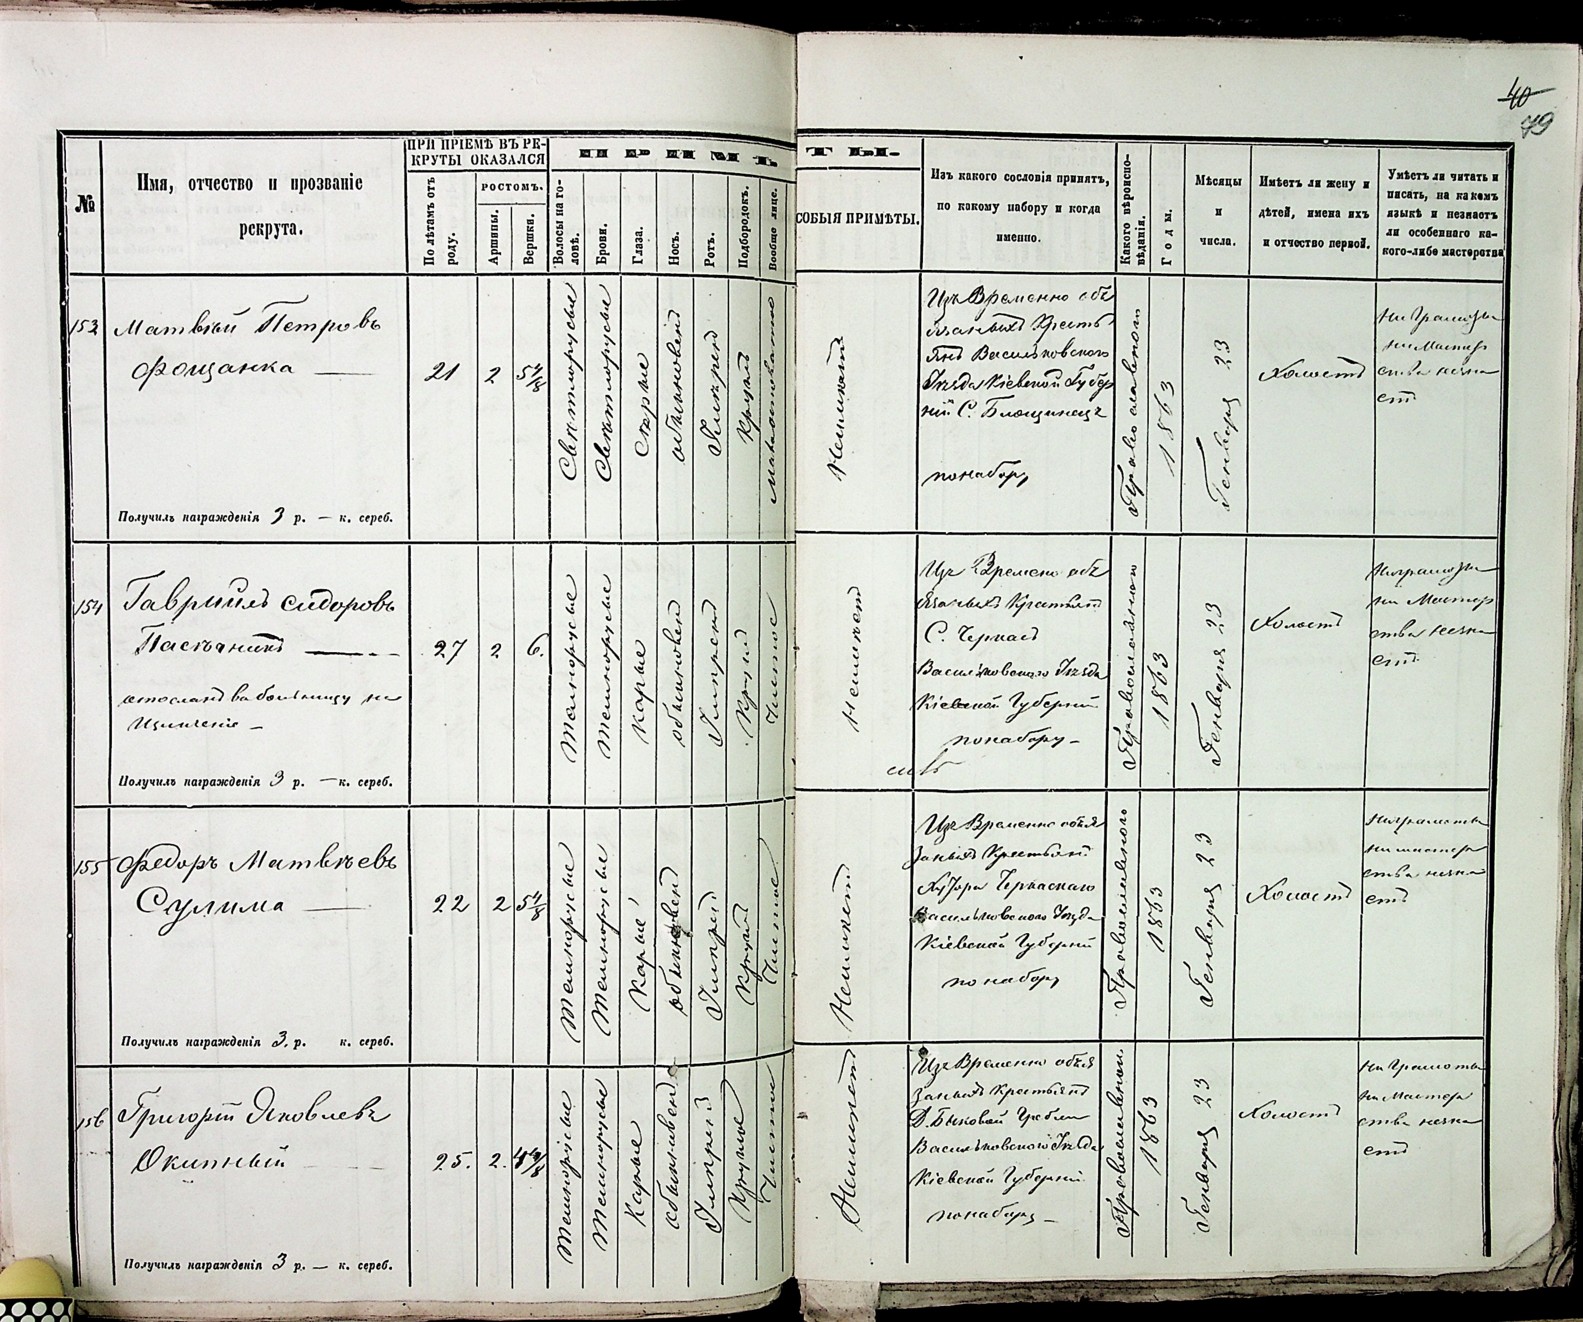 40
79
№
Имя, отчество и прозваніе
рекрута.
ПРИ ПРІЕМѢ ВЪ РЕ-
КРУТЫ ОКАЗАЛСЯ
По лѣтамъ отъ
роду.
РОСТОМЪ.
Аршины.
Вершки.
ПРИМѢТЫ.
Волосы на го-
ловѣ.
Брови.
Глаза.
Носъ.
Ротъ.
Подбородокъ.
Вообще лице.
СОБЫЯ ПРИМѢТЫ.
Изъ какого сословія принятъ,
по какому набору и когда
именно.
Какого вѣроиспо-
вѣданія.
Годы.
Мѣсяцы
и
числа.
Имѣетъ ли жену и
дѣтей, имена ихъ
и отчество первой.
Умѣетъ ли читать и
писать, на какомъ
языкѣ и незнаетъ
ли особеннаго ка-
кого-либо мастерства
153
Матвѣй Петровъ
Фощанка
Получилъ награжденія 3 р. — к. сереб.
21
2
5 4/8
Свѣтлорусые
Свѣтлорусые
Сѣрые
обыкновен
Умѣрен
Кругл
Неимѣет
Изъ Временно обя
занныхъ Кресть
янъ Васильковского
Уѣзда Кіевской Губер
ніи С. Блощинецъ
по набору
Православного
1863
Генваря 23
Холостъ
Ни Грамоты
ни Мастер
ства незна
етъ
154
Гавріилъ Сидоровъ
Пасѣчникъ
отосланъ въ больницу на
Излѣченіе —
Получилъ награжденія 3 р. — к. сереб.
27
2
6.
Темнорусые
Темнорусые
Карые
обыкновен
Умѣрен
Кругл
Чистое
Неимѣет
Изъ Времено обя
занныхъ Крестьян
С. Черкас
Васильковского Уѣзда
Кіевской Губерніи
по набору —
Православного
1863
Генваря 23
Холостъ
Ни грамоты
ни Мастер
ства незна
етъ
155
Федоръ Матвѣевъ
Сулима
Получилъ награжденія 3. р. к. сереб.
22
2
5 4/8
Темнорусые
Темнорусые
Карые
обыкновен
Умѣрен
Кругл
Чистое
Неимѣет
Изъ Временно обя
занныхъ Крестьян
Хутора Черкаскаго
Васильковского Уѣзда
Кіевской Губерніи
по набору
Православного
1863
Генваря 23
Холостъ
Ни грамоты
ни мастер
ства незна
етъ
156
Григорій Яковлевъ
Окипный
Получилъ награжденія 3 р. — к. сереб.
25.
2.
Темнорусые
Темнорусые
Карые
обыкновен
Умѣрен
Круглое
Чистое
Неимѣет
Изъ Временно обя
занныхъ Крестьянъ
Д. Быковой Гребли
Васильковского Уѣзда
Кіевской Губерніи
по набору —
Православной
1863
Генваря 23
Холостъ
Ни Грамоты
ни Мастер
ства незна
етъ